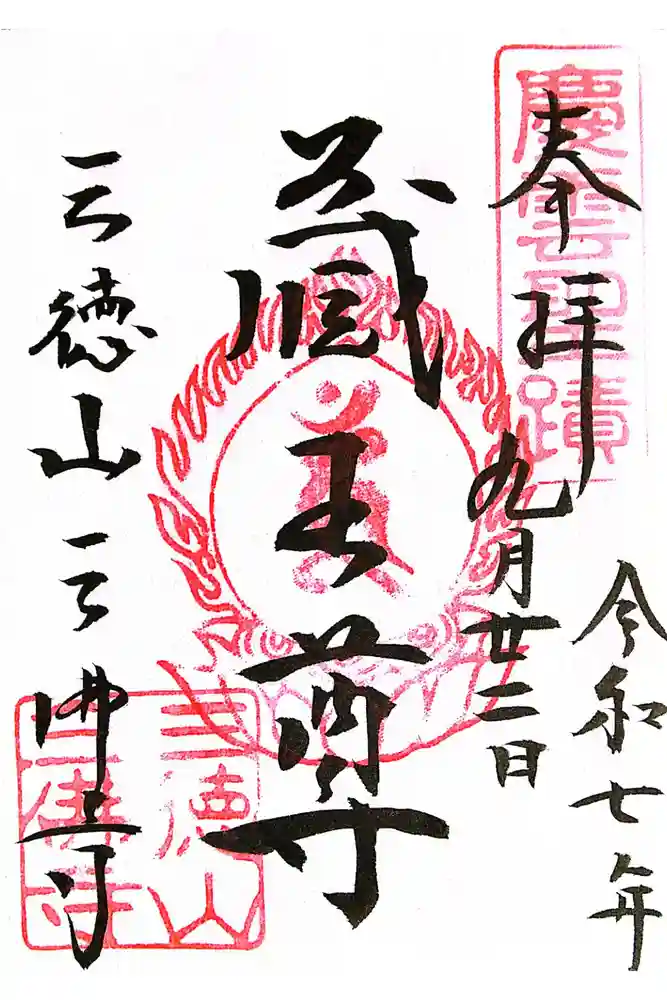 奉拝
慶雲聖蹟
令和七年
九月廿二日
蔵王尊
三徳山三佛寺
三徳山
三佛寺